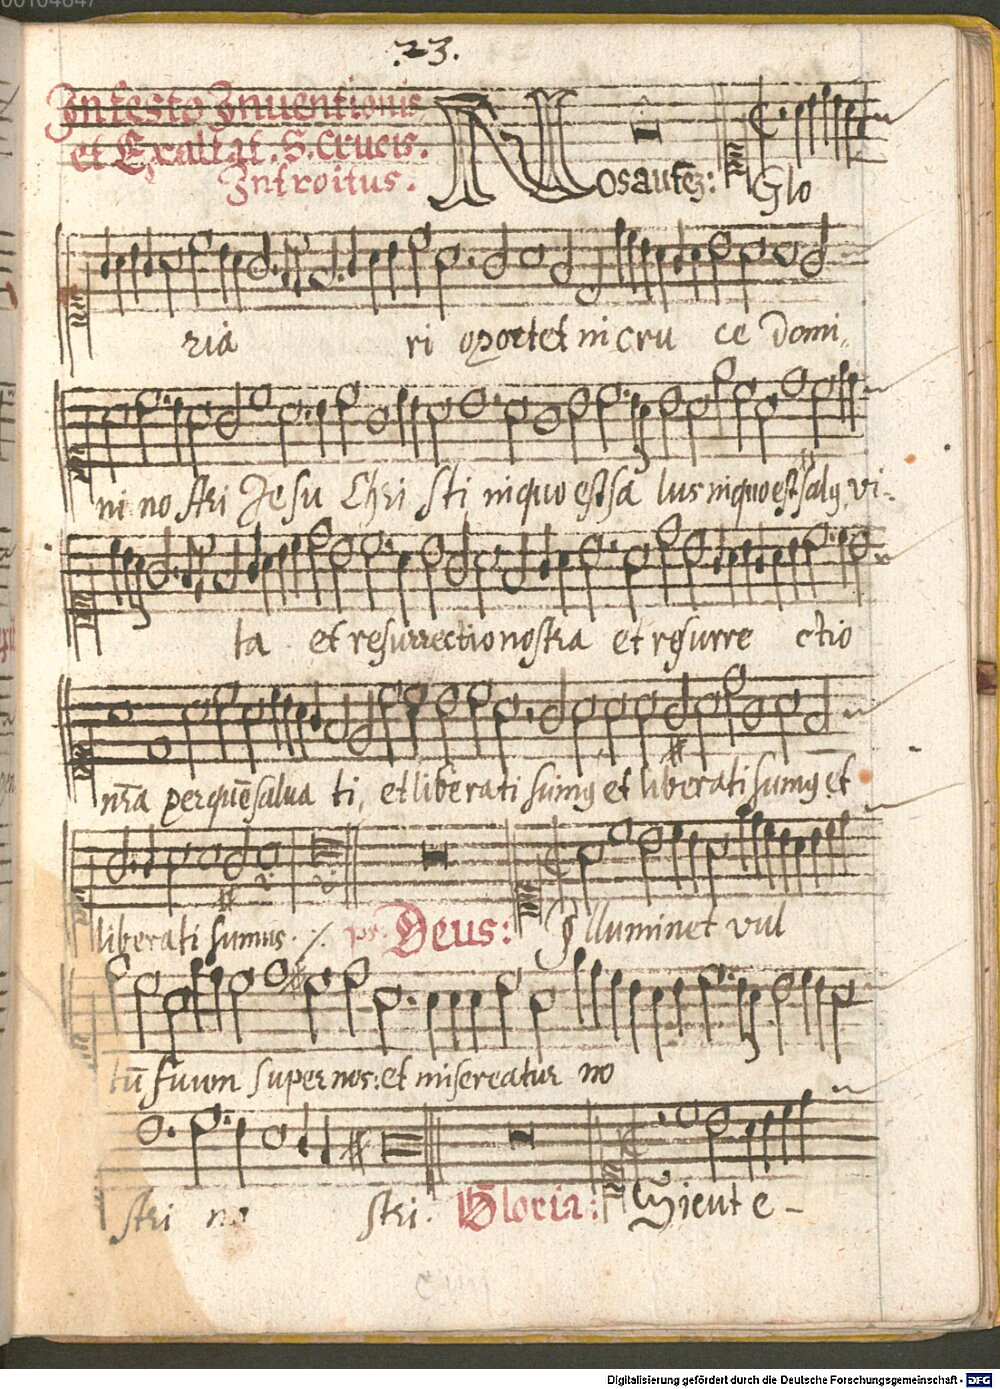 23.
In festo Inuentionis
et Exaltat. S. Crucis.
Introitus.
Nos autez: Glo
ria ri oportet in cru ce domi,
ni no stri Jesu Chri sti in quo est sa lus in quo est salus, vi-
ta et resurrectio nostra et resurre ctio
nr̄a per quē salua ti, et liberati sumus et liberati sumus et
liberati sumus. ps. Deus: Illuminet vul
tū suum super nos: et misereatur no
stri no stri. Gloria: Sicut e-
Digitalisierung gefördert durch die Deutsche Forschungsgemeinschaft - DFG